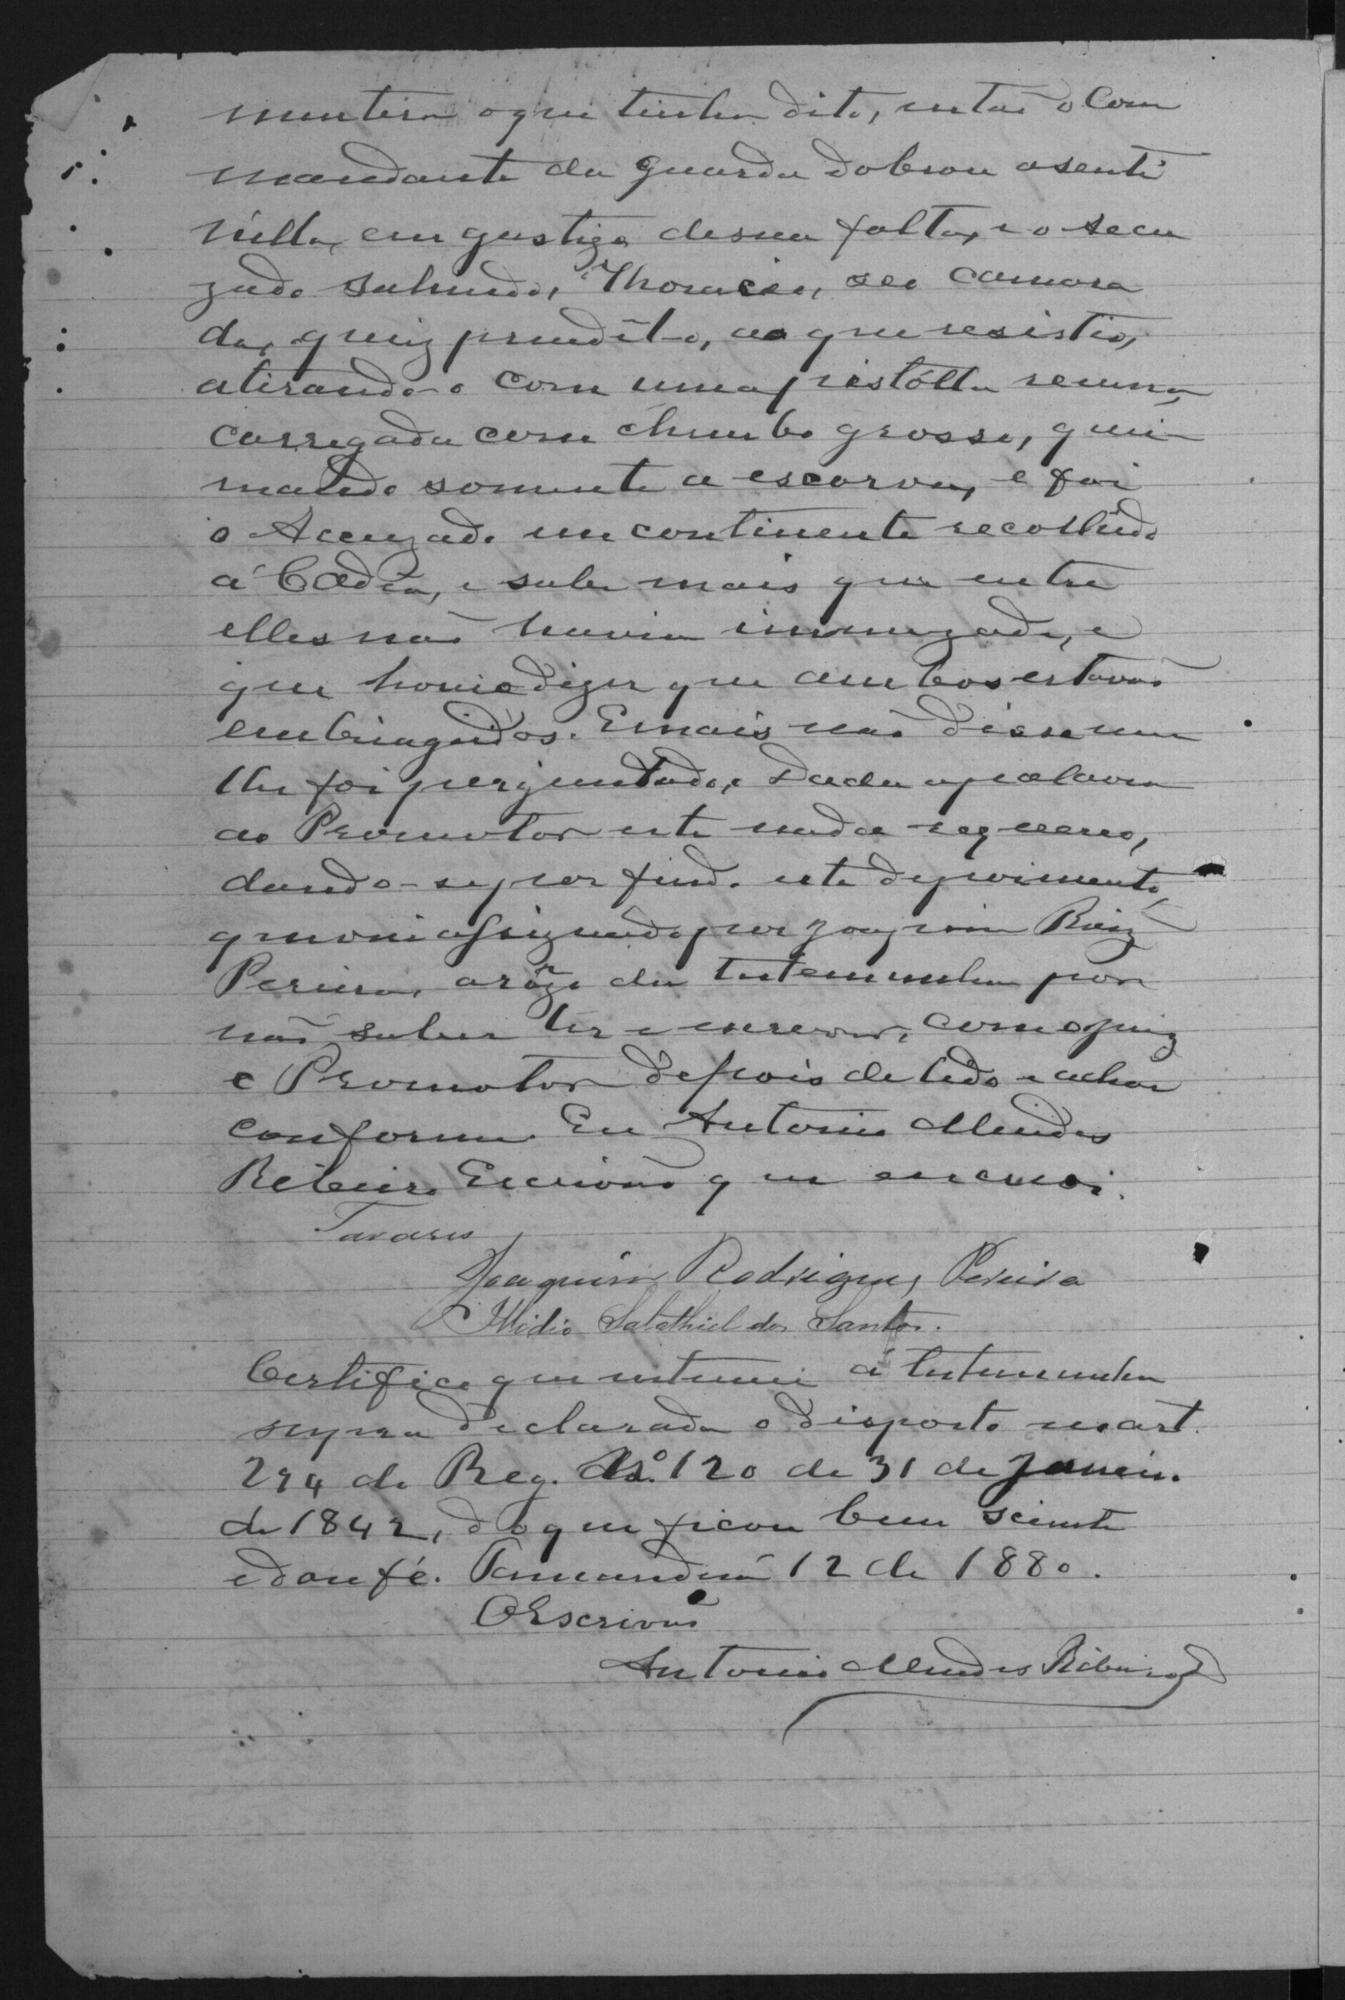 mentira o que tinha dito, então o Com
mandante da guarda dobrou a senti
nella, em justiça de sua falta, e o
zado sahindo, Thomasia, seo camara
da, quiz prendêl-o, ao que resistio,
atirando-o com uma pistólla
carregada com chumbo grosso, quei
mando somente a escorva, e foi
o Accuzado incontinente recolhido
á Cadêa, e sabe mais que entre
elles não havia inimizade, e
que houve dizer que ambos estavão
embriagados. E mais não disse nem
lhe foi perguntado, dada a palavra
ao Promotor este nada requereo,
dando-se por findo este depoimento,
que vai assignado por Joaquim Roiz
Pereira, a rôgo da testemunha por
não saber ler e escrever, com o Juiz
e Promotor depois de lido e achar
conforme. Eu Antonio Mendes
Ribeiro Escrivão que escrevi.
Tavares
Joaquim Rodrigues Pereira
Ilidio Salathiel dos Santos.
Certifico que intimei á testemunha
supra declarada o disposto no art.
294 do Reg. Nº 120 de 31 de Janeiro
de 1842, do que ficou bem sciente
e dou fé. Tamanduá 12 de 1880.
O Escrivão
Antonio Mendes Ribeiro